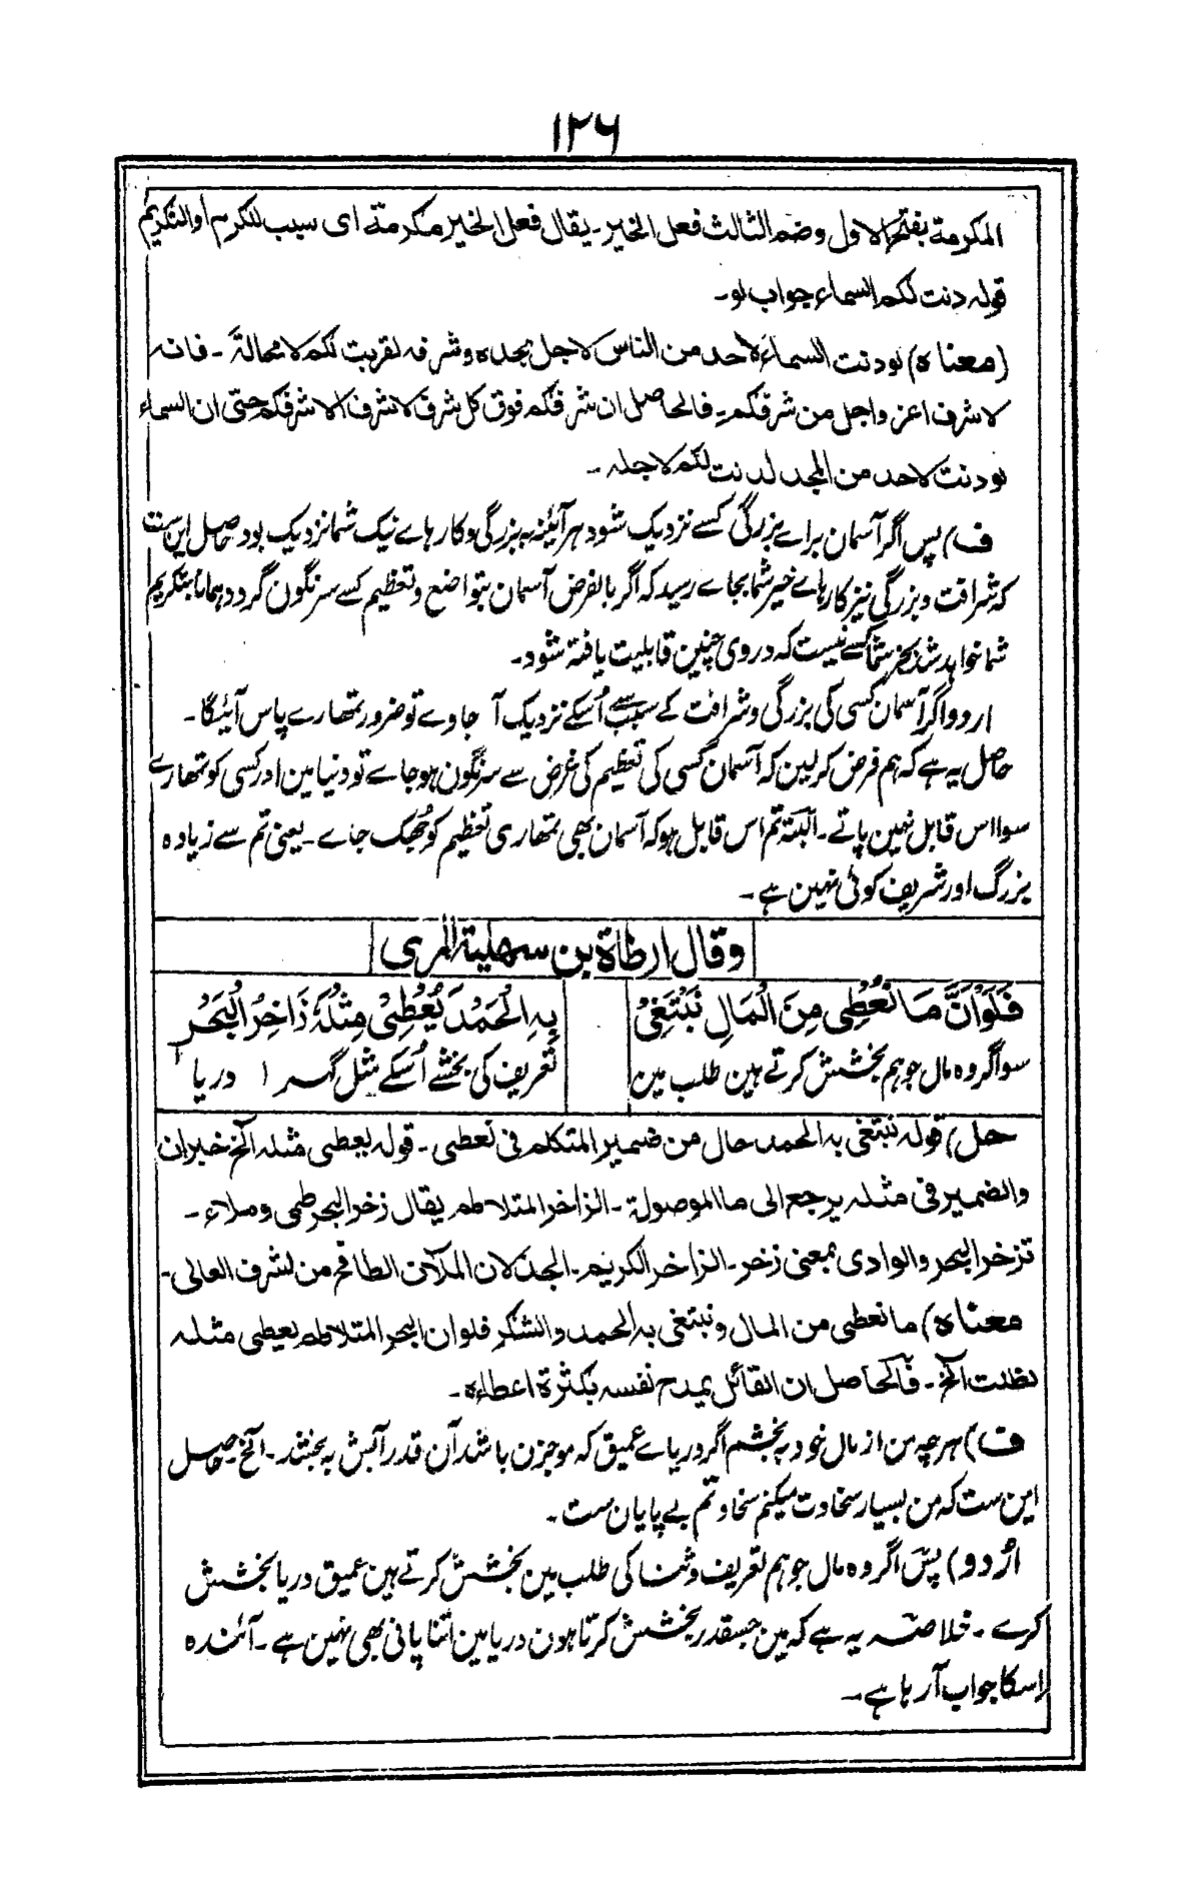 ۱۲۶
المکرمة بفتح الاول وضم الثالث فعل الخیر۔ یقال فعل الخیر مکرمة ای سبب للکرم او التکریم
قوله دنت لکم السماء جواب لو۔
(معناہ) لو دنت السماء لاحد من الناس لاجل مجده وشرفه لقربت لکم لا محالةَ۔ فانه
لا شرف اعز واجل من شرفکم۔ فالحاصل ان شرفکم فوق کل شرف لا شرف الا شرفکم حتی ان السماء
لو دنت لاحد من المجد لدنت لکم لاجله۔
ف) پس اگر آسمان براے بزرگی کسے نزدیک شود ہر آئینہ بہ بزرگی و کارہاے نیک شما نزدیک بود حاصل این ست
کہ شرافت و بزرگی نیز کارہاے خیر شما بجاے رسید کہ اگر بالفرض آسمان بتواضع و تعظیم کسے سرنگون گردد ہمانا بتکریم
شما خواہد شد بجز شما کسے نیست کہ در وی چنین قابلیت یافتہ شود۔
اردو اگر آسمان کسی کی بزرگی و شرافت کے سبب سے اُسکے نزدیک آ جاوے تو ضرور تمھارے پاس آئیگا۔
حاصل یہ ہے کہ ہم فرض کر لین کہ آسمان کسی کی تعظیم کی غرض سے سرنگون ہو جاے تو دنیا مین اور کسی کو تمھارے
سوا اس قابل نہین پاتے۔ البتہ تم اس قابل ہو کہ آسمان بھی تمھاری تعظیم کو جُھک جاے۔ یعنی تم سے زیادہ
بزرگ اور شریف کوئی نہین ہے۔
وقال ارطاة بن سهلیة المری
فَلَوْاَنَّ مَا نُعْطِی مِنَ الْمَالِ نَبْتَغِیْ بِهِ الْحَمْدَ یُعْطِیْ مِثْلَهٗ زَاخِرُ الْبَحْرِ
سو اگر وہ مال جو ہم بخشش کرتے ہین طلب مین تعریف کی بخشے اُسکے مثل گہرا دریا
حل) قوله نبتغی به الحمد حال من ضمیر المتکلم فی نعطی۔ قوله یعطی مثله الخ خبر ان
والضمیر فی مثله یرجع الی ما الموصولة۔ الزاخر المتلاطم یقال زخر البحر طمی وملاء۔
تزخر البحر والوادی بمعنی زخر۔ الزاخر الکریم۔ الجذلان الملآن الطافح من لشرف العالی۔
معناہ) ما نعطی من المال ونبتغی به الحمد والشکر فلو ان البحر المتلاطم یعطی مثله
لظلت الخ۔ فالحاصل ان القائل یمدح نفسه بکثرة اعطاءه۔
ف) ہرچہ من از مال خود بہ بخشم اگر دریاے عمیق کہ موجزن باشد آن قدر آبش بہ بخشد۔ الخ حاصل
این ست کہ من بسیار سخاوت میکنم سخاوتم بے پایان ست۔
اُردو) پس اگر وہ مال جو ہم تعریف و ثنا کی طلب مین بخشش کرتے ہین عمیق دریا بخشش
کرے۔ خلاصہ یہ ہے کہ مین جسقدر بخشش کرتا ہون دریا مین اتنا پانی بھی نہین ہے۔ آئندہ
اسکا جواب آ رہا ہے۔